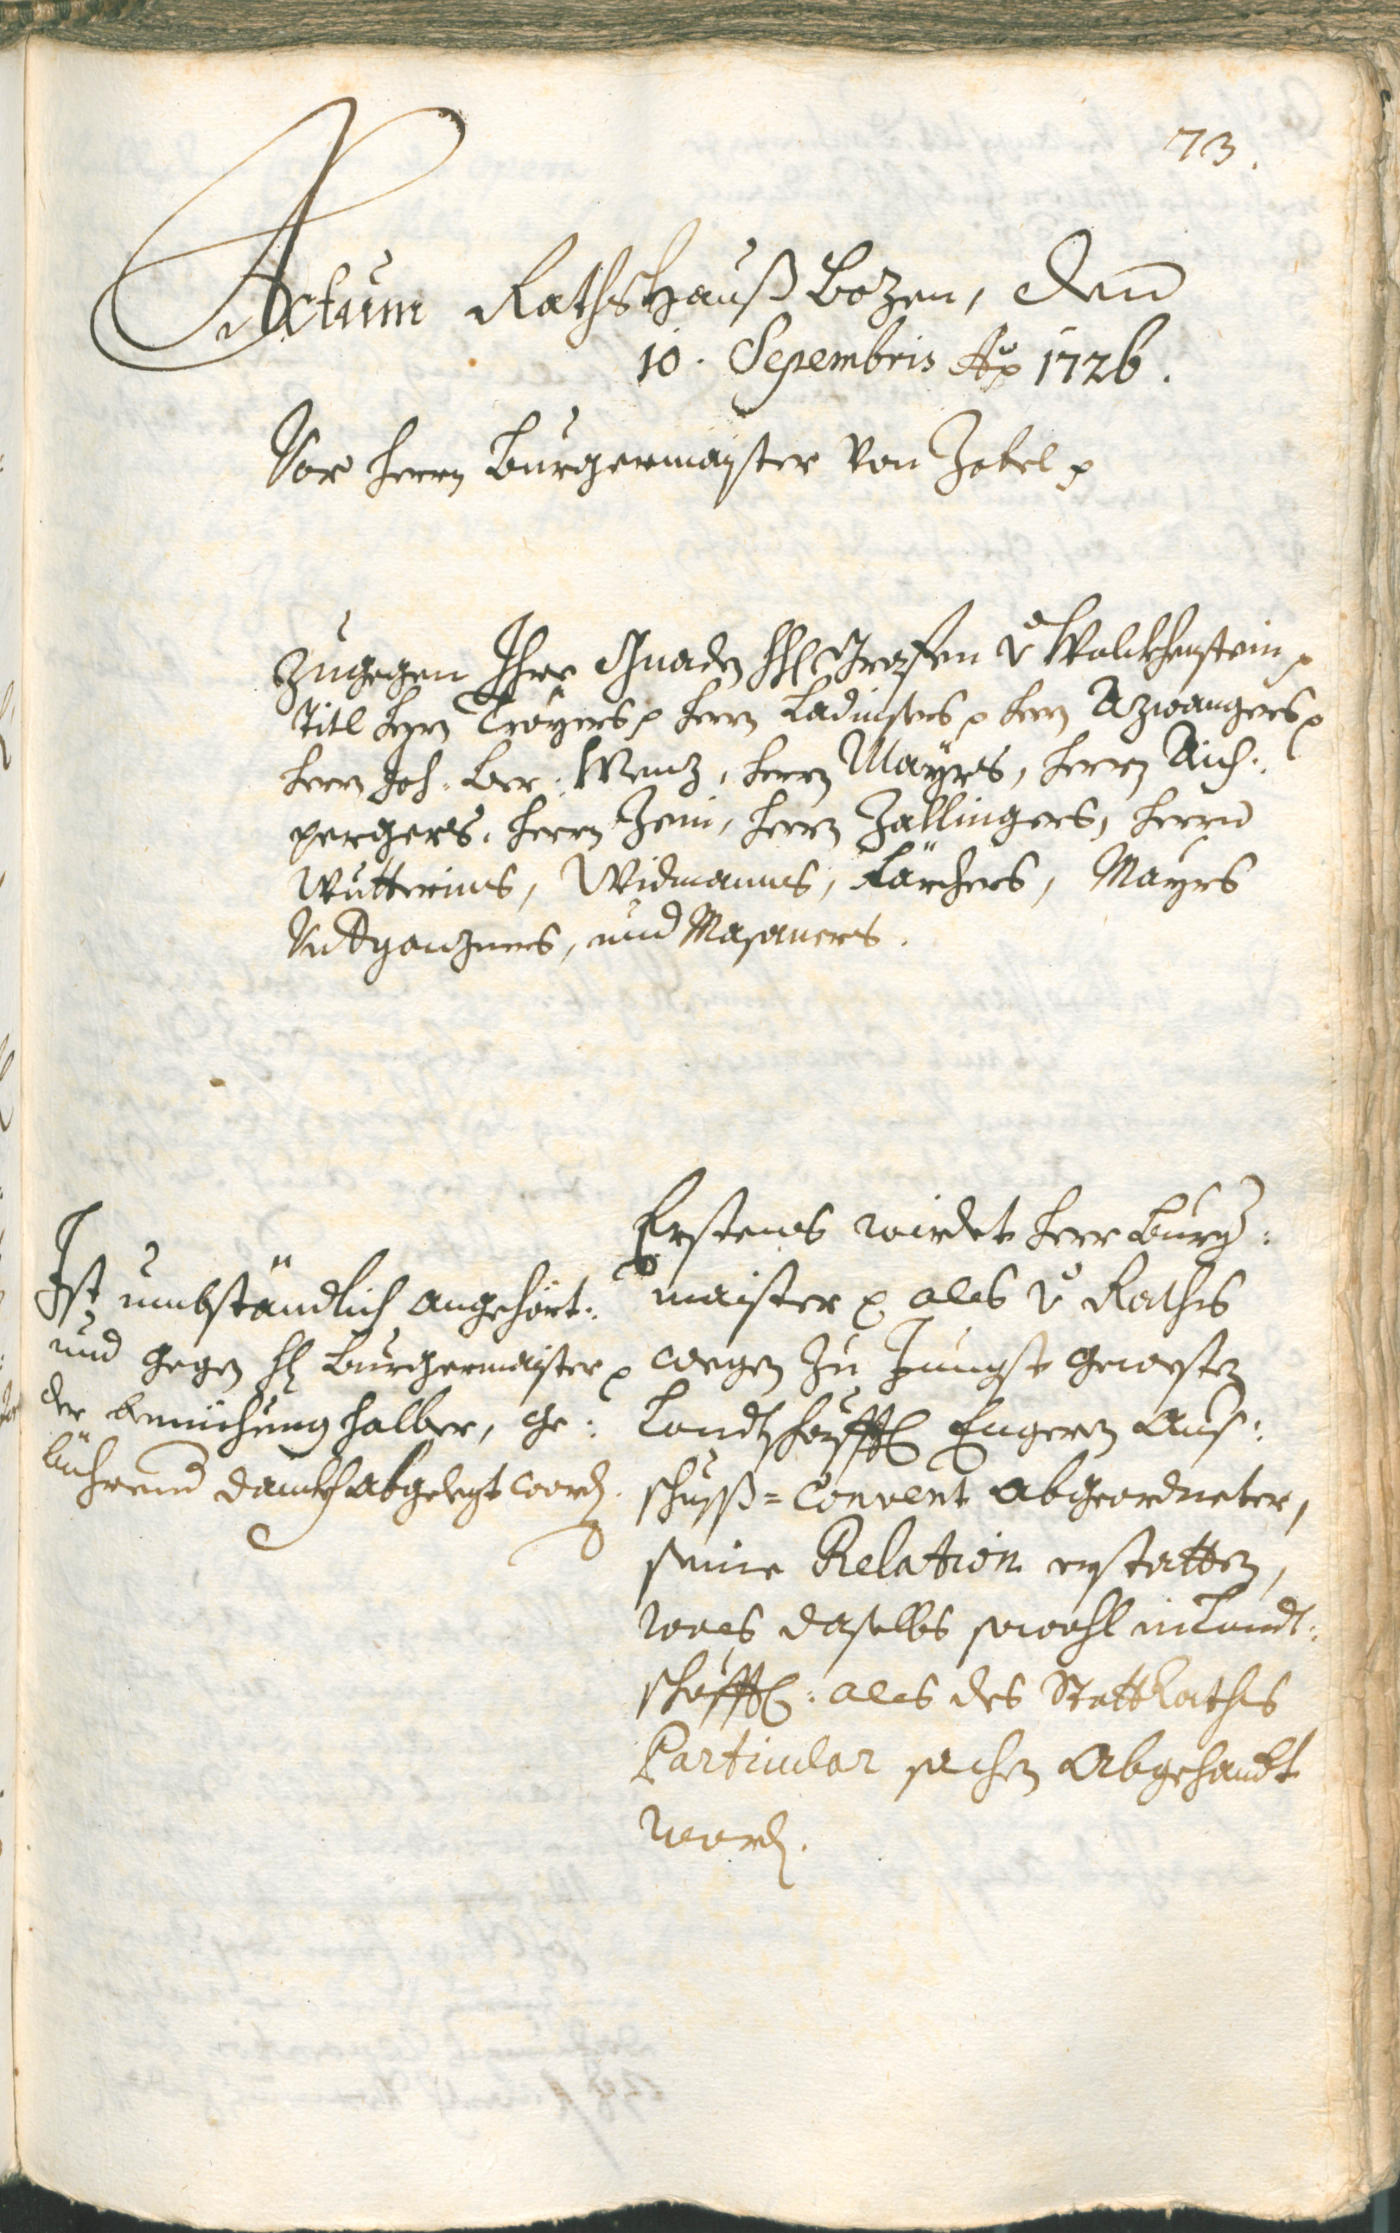 73.
Actum Rathshauß Bozen, den
10. Sepembris Ao 1726.
Vor Herrn Burgermaister von Zobel p
Zugegen Ihre Gnaden HH Grafen v Wolckhenstein p
Titl Herrn Troyers p Herrn Ladinsers p Herrn Azwangers p
Herrn Joh. Ber. Wenz, Herrn Mayrs, Herrn Aich:
pergers, Herrn Zeni, Herrn Zallingers, Herrn
Wutterins, Widmanns, Lärchers, Mayrs
und Masaners.
Ist umbständlich angehört:
und gegen H Burgermaister p
der bemiehung halber, ge:
bührend danckh abgelegt word.
Erstens wirdet Herr Burg:
maister p als v Raths
wegen zu Jungst gewesten
Landtschafftl Engeren Aus:
schuss=Convent abgeordneter,
seine Relation erstatten,
was daselbs sowohl in Landt:
schafftl: als des StattRaths
Particular sachen abgehandlt
word.